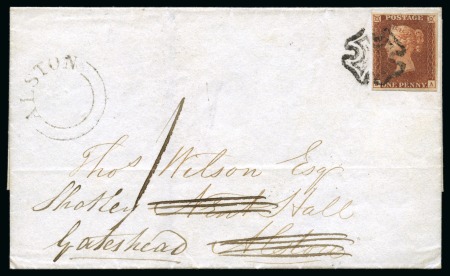 ALSTON
POSTAGE
ONE PENNY A
1
Thos Wilson Esq
Shotley Nent Hall
Gateshead Alston